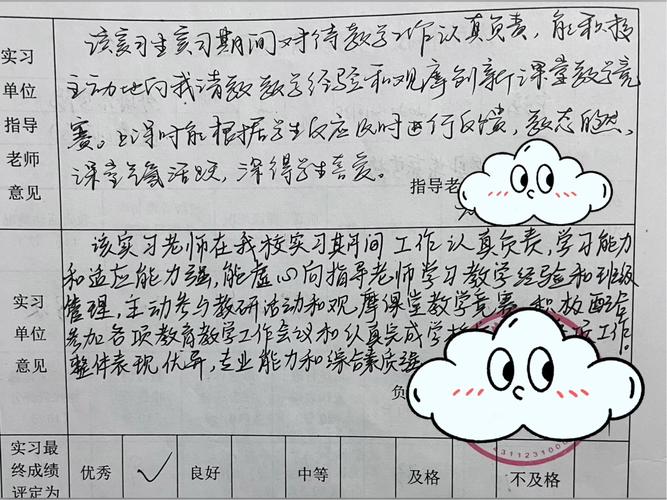 该实习生实习期间对待教学工作认真负责，能积极
主动地向我请教教学经验和观摩创新课堂教学竞
赛。上课时能根据学生反应及时进行反馈，教态自然，
课堂气氛活跃，深得学生喜爱。
实习
单位
指导
老师
意见
指导老
该实习老师在我校实习期间工作认真负责，学习能力
和适应能力强，能虚心向指导老师学习教学经验和班级
管理，主动参与教研活动和观摩课堂教学竞赛，积极配合
参加各项教育教学工作会议和认真完成学校 项工作。
整体表现优异，专业能力和综合素质强
实习
单位
意见
负
4311231000
实习最
终成绩
评定为
优秀 ✓ 良好 中等 及格 不及格